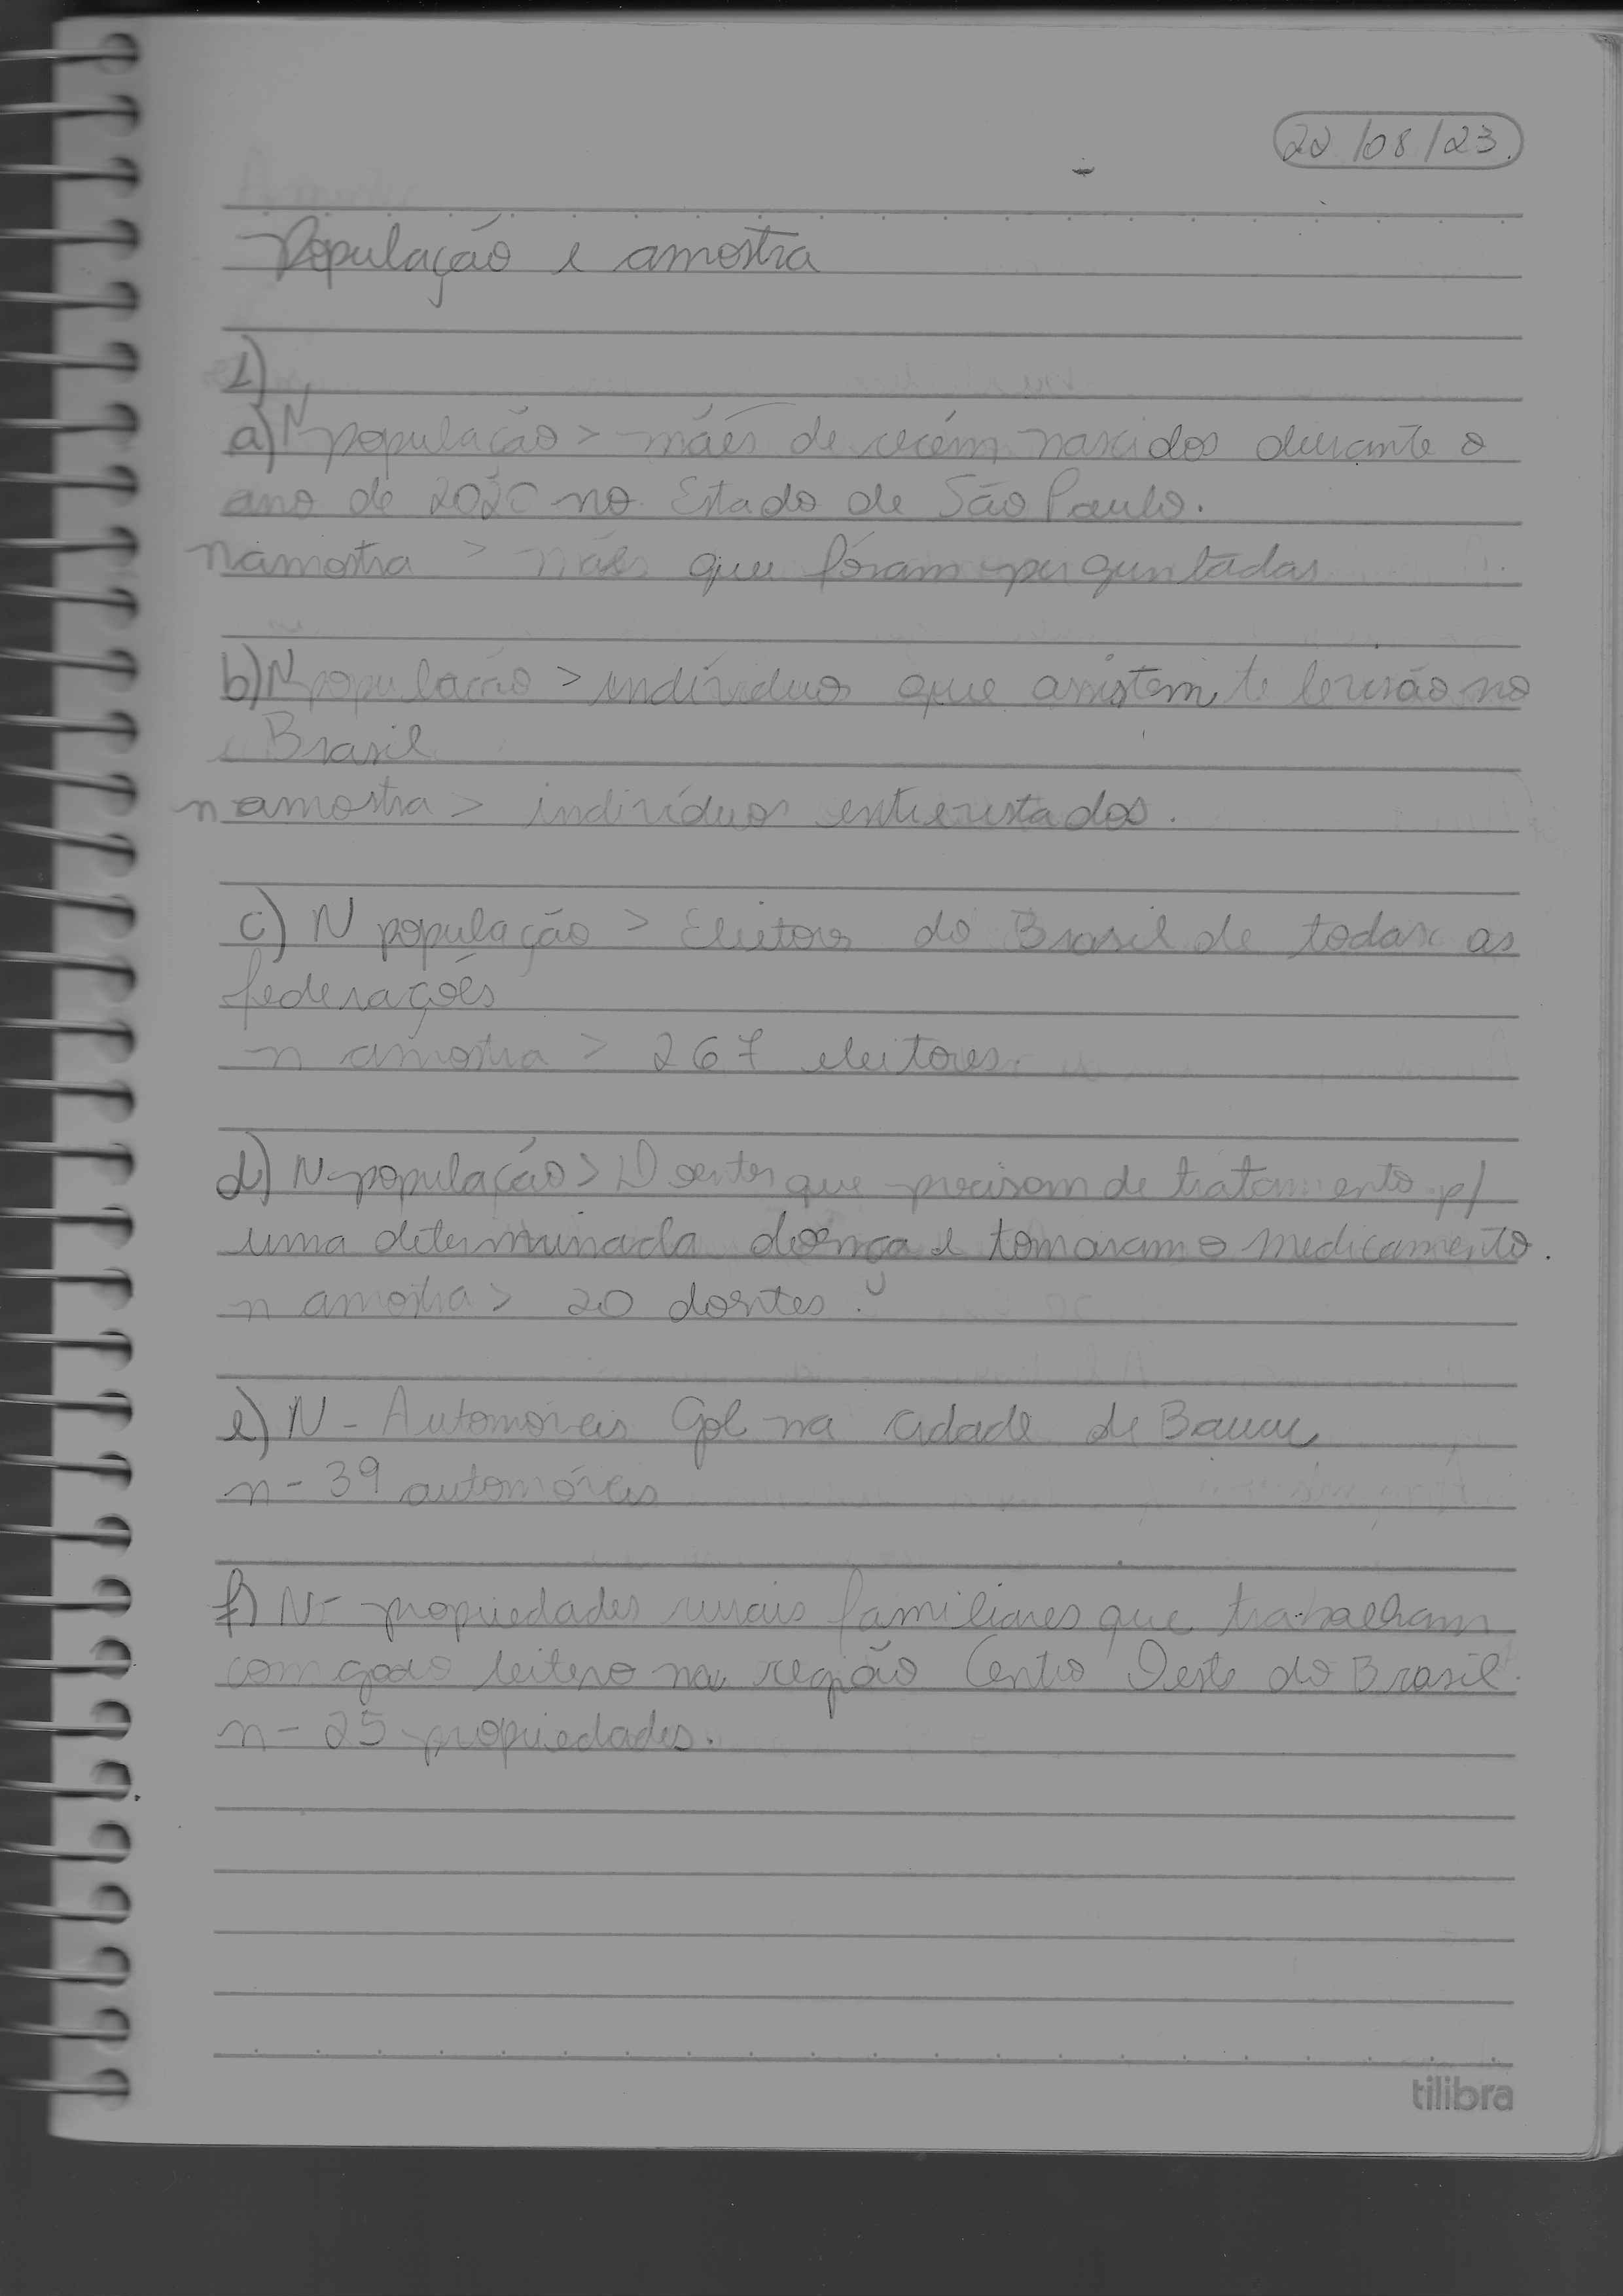 22/08/23.
População e amostra
1)
a) N população > mães de recém nascidos durante o
ano de 2020 no Estado de São Paulo.
n amostra > mães que foram perguntadas
b) N população > indivíduos que assistem televisão no
Brasil
n amostra > indivíduos entrevistados.
c) N população > Eleitores do Brasil de todas as
federações
n amostra > 267 eleitores.
d) N população > Doentes que precisam de tratamento p/
uma determinada doença e tomaram o medicamento.
n amostra > 20 doentes.
e) N - Automóveis Gol na cidade de Bauru
n - 39 automóveis
f) N - propriedades rurais familiares que trabalham
com gado leiteiro na região Centro Oeste do Brasil.
n - 25 propriedades.
tilibra